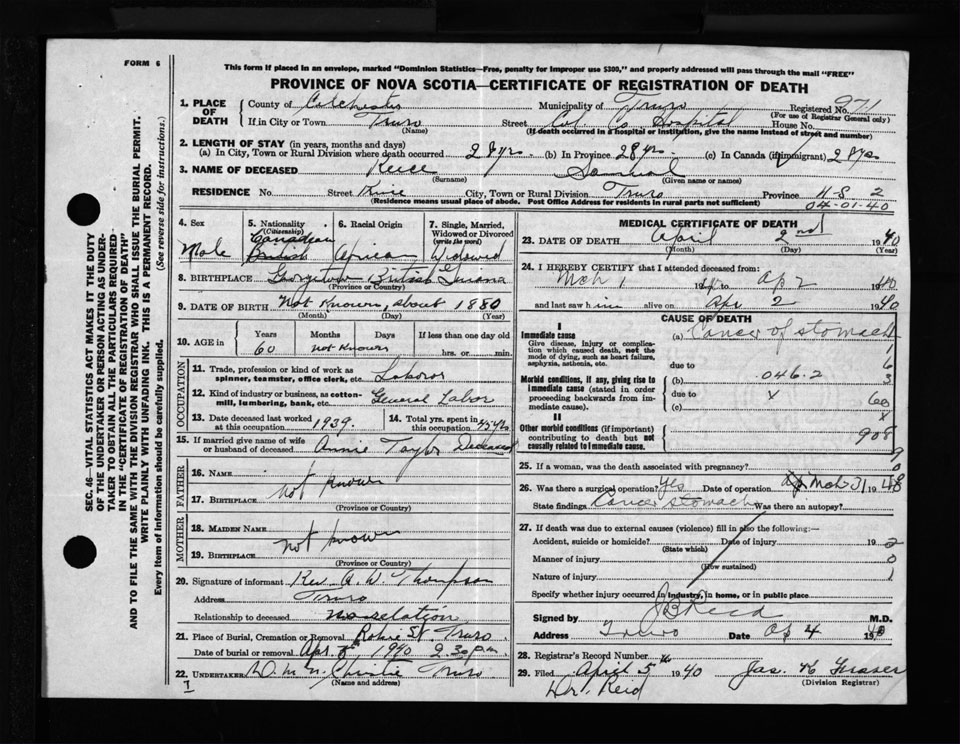 FORM 6
This form if placed in an envelope, marked "Dominion Statistics—Free, penalty for improper use $300," and properly addressed will pass through the mail "FREE"
PROVINCE OF NOVA SCOTIA—CERTIFICATE OF REGISTRATION OF DEATH
SEC. 46—VITAL STATISTICS ACT MAKES IT THE DUTY
OF THE UNDERTAKER OR PERSON ACTING AS UNDER-
TAKER TO OBTAIN ALL THE PARTICULARS REQUIRED
IN THE "CERTIFICATE OF REGISTRATION OF DEATH"
AND TO FILE THE SAME WITH THE DIVISION REGISTRAR WHO SHALL ISSUE THE BURIAL PERMIT.
WRITE PLAINLY WITH UNFADING INK. THIS IS A PERMANENT RECORD.
Every item of information should be carefully supplied. (See reverse side for instructions.)
1. PLACE OF DEATH County of Colchester Municipality of Truro Registered No. 971
(For use of Registrar General only)
If in City or Town Truro (Name) Street Col. Co. Hospital House No.
(If death occurred in a hospital or institution, give the name instead of street and number)
2. LENGTH OF STAY (in years, months and days)
(a) In City, Town or Rural Division where death occurred 28 yrs. (b) In Province 28 yrs. (c) In Canada (if immigrant) 28 yrs
3. NAME OF DECEASED Reece (Surname) Samuel (Given name or names)
RESIDENCE No. Street City, Town or Rural Division Truro Province N-S 2
(Residence means usual place of abode. Post Office Address for residents in rural parts not sufficient) 04-01-40
4. Sex 5. Nationality (Citizenship) 6. Racial Origin 7. Single, Married, Widowed or Divorced (write the word)
Male Canadian British African Widowed
8. BIRTHPLACE Georgetown British Guiana
(Province or Country)
9. DATE OF BIRTH Not Known, about 1880
(Month) (Day) (Year)
10. AGE in Years Months Days If less than one day old
60 not known hrs. or min.
OCCUPATION
11. Trade, profession or kind of work as spinner, teamster, office clerk, etc. Laborer
12. Kind of industry or business, as cotton-mill, lumbering, bank, etc. General Labor
13. Date deceased last worked at this occupation 1939. 14. Total yrs. spent in this occupation 45 yrs
15. If married give name of wife or husband of deceased Annie Taylor Deceased
FATHER
16. NAME
not known
17. BIRTHPLACE
(Province or Country)
MOTHER
18. MAIDEN NAME
not known
19. BIRTHPLACE
(Province or Country)
20. Signature of informant Rev. A. W. Thompson
Address Truro
Relationship to deceased no relation
21. Place of Burial, Cremation or Removal Robie St. Truro
Date of burial or removal Apr. 1940 2.30 p.m.
22. UNDERTAKER Christie Truro
(Name and address)
MEDICAL CERTIFICATE OF DEATH
23. DATE OF DEATH April 2nd 1940
(Month) (Day) (Year)
24. I HEREBY CERTIFY that I attended deceased from:
Mch 1 19 to Ap 2 1940
and last saw him alive on Apr 2 1940
CAUSE OF DEATH
I
Immediate cause (a) Cancer of stomach
Give disease, injury or complication which caused death, not the mode of dying, such as heart failure, asphyxia, asthenia, etc.
due to
Morbid conditions, if any, giving rise to immediate cause (stated in order proceeding backwards from immediate cause). (b) 046.2
due to x
(c)
II
Other morbid conditions (if important) contributing to death but not causally related to immediate cause.
1
6
3
60
x
908
9
0
25. If a woman, was the death associated with pregnancy?
26. Was there a surgical operation? Yes Date of operation Mch 31 19
State findings Cancer stomach Was there an autopsy?
27. If death was due to external causes (violence) fill in also the following:—
Accident, suicide or homicide? Date of injury 19 2
(State which)
Manner of injury 0
(How sustained)
Nature of injury 1
Specify whether injury occurred in industry, in home, or in public place
Signed by J B Reid M.D.
Address Truro Date Ap 4 1940
28. Registrar's Record Number
29. Filed April 5th 1940 Jas. N Fraser
(Division Registrar)
Dr. Reid